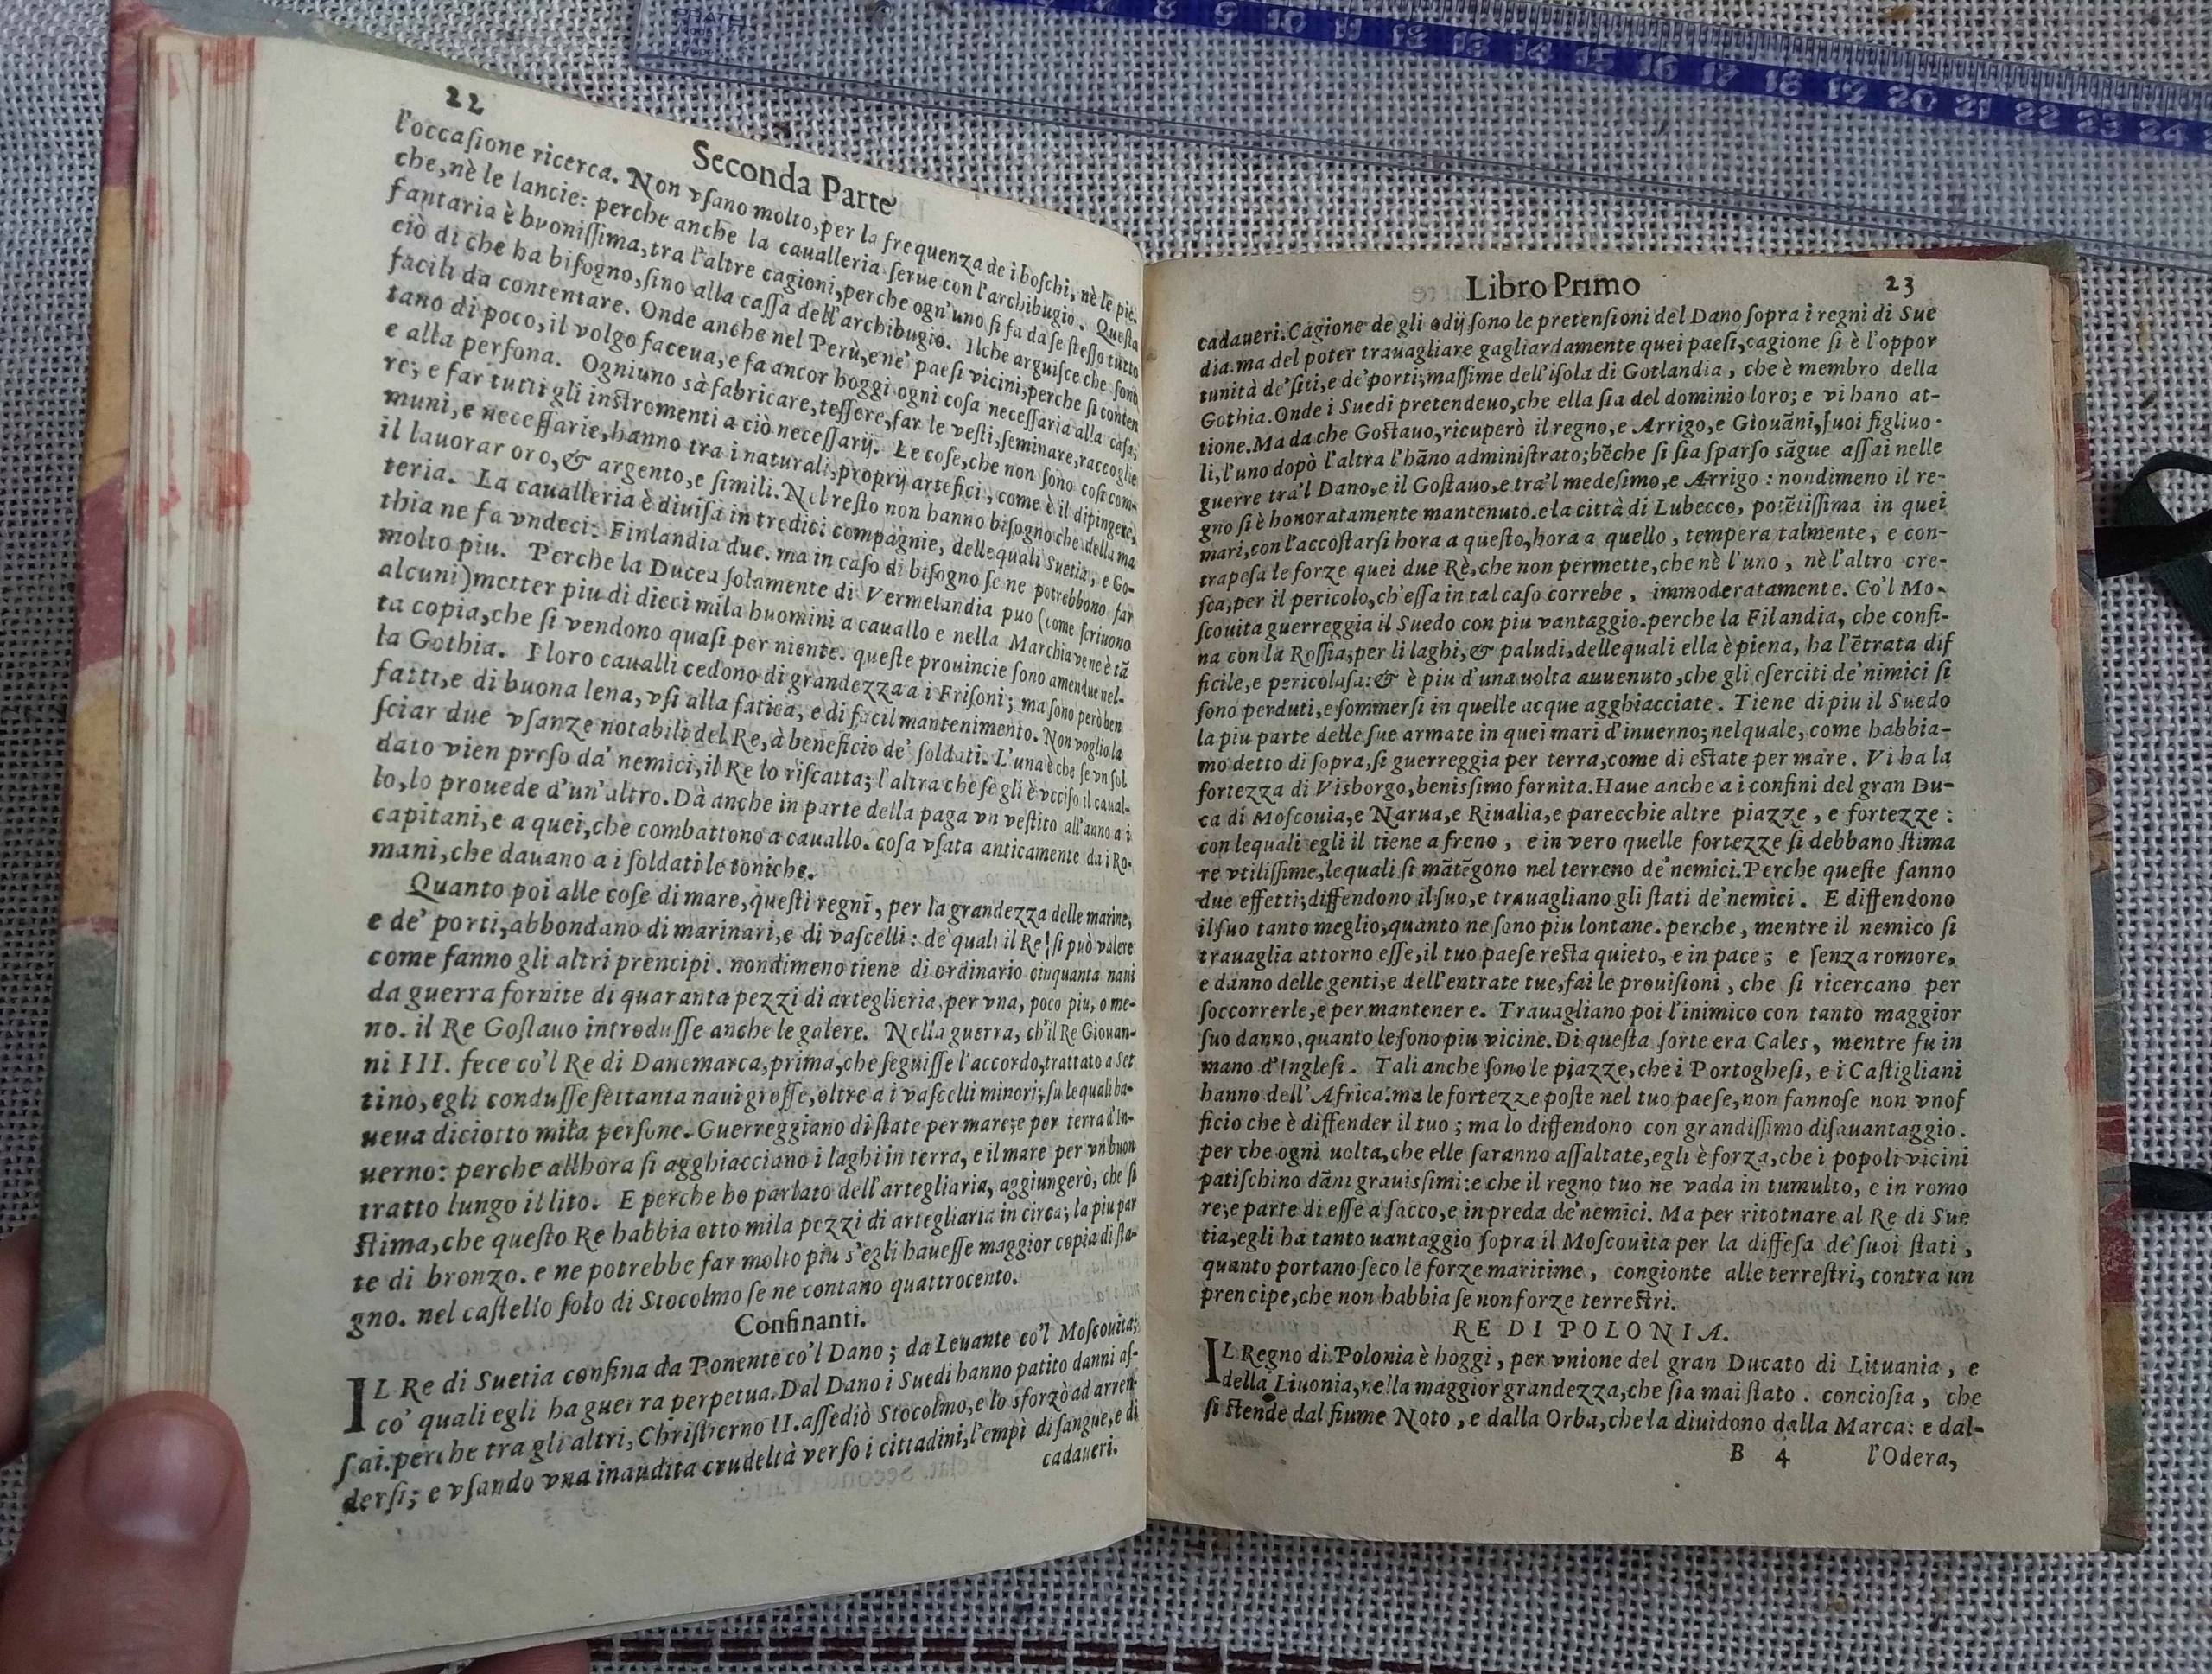 22
Seconda Parte
l'occaſione ricerca. Non vſano molto, per la frequenza de i boſchi, nè le pic-
che, nè le lancie: perche anche la caualleria ſerue con l'archibugio. Queſta
fantaria è buoniſſima, tra l'altre cagioni, perche ogn'uno ſi fa da ſe ſteſſo tutto
ciò di che ha biſogno, ſino alla caſſa dell'archibugio. Ilche arguiſce che ſono
facili da contentare. Onde anche nel Perù, e ne' paeſi vicini, perche ſi conten
tano di poco, il volgo faceua, e fa ancor hoggi ogni coſa neceſſaria alla caſa,
e alla perſona. Ogniuno sà fabricare, teſſere, far le veſti, ſeminare, raccoglie
re; e far tutti gli inſtromenti a ciò neceſſarij. Le coſe, che non ſono coſi com-
muni, e neceſſarie, hanno tra i naturali, proprij artefici, come è il dipingere,
il lauorar oro, & argento, e ſimili. Nel reſto non hanno biſogno che della ma
teria. La caualleria è diuiſa in tredici compagnie, delle quali Suetia, e Go-
thia ne fa vndeci: Finlandia due. ma in caſo di biſogno ſe ne potrebbono far
molto piu. Perche la Ducea ſolamente di Vermelandia puo (come ſcriuono
alcuni) metter piu di dieci mila huomini a cauallo e nella Marchia vene è tā
ta copia, che ſi vendono quaſi per niente. queſte prouincie ſono amendue nel-
la Gothia. I loro caualli cedono di grandezza a i Friſoni; ma ſono però ben
fatti, e di buona lena, vſi alla fatica, e di facil mantenimento. Non voglio la
ſciar due vſanze notabili del Re, à beneficio de' ſoldati. L'una è che ſe vn ſol
dato vien preſo da' nemici, il Re lo riſcatta; l'altra che ſe gli è vcciſo il caual-
lo, lo prouede d'un'altro. Dà anche in parte della paga vn veſtito all'anno a i
capitani, e a quei, che combattono a cauallo. coſa vſata anticamente da i Ro-
mani, che dauano a i ſoldati le toniche.
Quanto poi alle coſe di mare, queſti regni, per la grandezza delle marine,
e de' porti, abbondano di marinari, e di vaſcelli: de' quali il Re ſi può valere
come fanno gli altri prencipi. nondimeno tiene di ordinario cinquanta naui
da guerra fornite di quaranta pezzi di arteglieria, per vna, poco piu, o me-
no. il Re Goſtauo introduſſe anche le galere. Nella guerra, ch'il Re Giouan-
ni III. fece co'l Re di Danemarca, prima, che ſeguiſſe l'accordo, trattato a Set
tino, egli conduſſe ſettanta naui groſſe, oltre a i vaſcelli minori; ſu le quali ha-
ueua diciotto mila perſone. Guerreggiano di ſtate per mare; e per terra d'In-
uerno: perche all'hora ſi agghiacciano i laghi in terra, e il mare per vn buon
tratto lungo il lito. E perche ho parlato dell'artegliaria, aggiungerò, che ſi
ſtima, che queſto Re habbia otto mila pezzi di artegliaria in circa; la piu par
te di bronzo. e ne potrebbe far molto piu s'egli haueſſe maggior copia di ſta-
gno. nel caſtello ſolo di Stocolmo ſe ne contano quattrocento.
Confinanti.
IL Re di Suetia confina da Ponente co'l Dano; da Leuante co'l Moſcouita;
co' quali egli ha guerra perpetua. Dal Dano i Suedi hanno patito danni aſ-
ſai. perche tra gli altri, Chriſtierno II. aſſediò Stocolmo, e lo sforzò ad arren-
derſi; e vſando vna inaudita crudeltà verſo i cittadini, l'empì di ſangue, e di
cadaueri.
Libro Primo
23
cadaueri. Cagione de gli odij ſono le pretenſioni del Dano ſopra i regni di Sue
dia. ma del poter trauagliare gagliardamente quei paeſi, cagione ſi è l'oppor
tunità de' ſiti, e de' porti; maſſime dell'iſola di Gotlandia, che è membro della
Gothia. Onde i Suedi pretendeuo, che ella ſia del dominio loro; e vi hano at-
tione. Ma da che Goſtauo, ricuperò il regno, e Arrigo, e Giouāni, ſuoi figliuo-
li, l'uno dopò l'altra l'hāno adminiſtrato; bēche ſi ſia ſparſo sāgue aſſai nelle
guerre tra'l Dano, e il Goſtauo, e tra'l medeſimo, e Arrigo: nondimeno il re-
gno ſi è honoratamente mantenuto. e la città di Lubecco, potētiſſima in quei
mari, con l'accoſtarſi hora a queſto, hora a quello, tempera talmente, e con-
trapeſa le forze quei due Rè, che non permette, che nè l'uno, nè l'altro cre-
ſca, per il pericolo, ch'eſſa in tal caſo correbe, immoderatamente. Co'l Mo-
ſcouita guerreggia il Suedo con piu vantaggio. perche la Filandia, che confi-
na con la Roſſia, per li laghi, & paludi, delle quali ella è piena, ha l'ētrata dif
ficile, e pericoloſa: & è piu d'una uolta auuenuto, che gli eſerciti de' nimici ſi
ſono perduti, e ſommerſi in quelle acque agghiacciate. Tiene di piu il Suedo
la piu parte delle ſue armate in quei mari d'inuerno; nel quale, come habbia-
mo detto di ſopra, ſi guerreggia per terra, come di eſtate per mare. Vi ha la
fortezza di Visborgo, beniſſimo fornita. Haue anche a i confini del gran Du-
ca di Moſcouia, e Narua, e Riualia, e parecchie altre piazze, e fortezze:
con lequali egli il tiene a freno, e in vero quelle fortezze ſi debbano ſtima
re vtiliſſime, lequali ſi mātēgono nel terreno de' nemici. Perche queſte fanno
due effetti; diffendono il ſuo, e trauagliano gli ſtati de' nemici. E diffendono
il ſuo tanto meglio, quanto ne ſono piu lontane. perche, mentre il nemico ſi
trauaglia attorno eſſe, il tuo paeſe reſta quieto, e in pace; e ſenza romore,
e danno delle genti, e dell'entrate tue, fai le prouiſioni, che ſi ricercano per
ſoccorrerle, e per mantenere. Trauagliano poi l'inimico con tanto maggior
ſuo danno, quanto le ſono piu vicine. Di queſta ſorte era Cales, mentre fu in
mano d'Ingleſi. Tali anche ſono le piazze, che i Portogheſi, e i Caſtigliani
hanno dell'Africa: ma le fortezze poſte nel tuo paeſe, non fanno ſe non vnof
ficio che è diffender il tuo; ma lo diffendono con grandiſſimo diſauantaggio.
per che ogni uolta, che elle ſaranno aſſaltate, egli è forza, che i popoli vicini
patiſchino dāni grauiſſimi: e che il regno tuo ne vada in tumulto, e in romo
re; e parte di eſſe a ſacco, e in preda de' nemici. Ma per ritotnare al Re di Sue
tia, egli ha tanto uantaggio ſopra il Moſcouita per la diffeſa de' ſuoi ſtati,
quanto portano ſeco le forze maritime, congionte alle terreſtri, contra un
prencipe, che non habbia ſe non forze terreſtri.
RE DI POLONIA.
IL Regno di Polonia è hoggi, per vnione del gran Ducato di Lituania, e
della Liuonia, nella maggior grandezza, che ſia mai ſtato. concioſia, che
ſi ſtende dal fiume Noto, e dalla Orba, che la diuidono dalla Marca: e dal-
B 4 l'Odera,
7 8 9 10 11 12 13 14 15 16 17 18 19 20 21 22 23 24